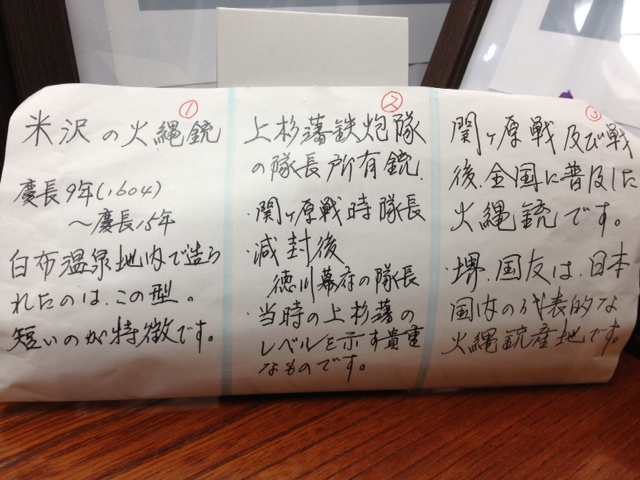 ①
米沢の火縄銃
慶長9年(1604)
～慶長15年
白布温泉地内で造ら
れたのは、この型。
短いのが特徴です。
②
上杉藩鉄炮隊
の隊長所有銃.
・関ヶ原戦時隊長
・減封後
徳川幕府の隊長
・当時の上杉藩の
レベルを示す貴重
なものです。
③
関ヶ原戦及び戦
後、全国に普及した
火縄銃です。
・堺、国友は、日本
国内の代表的な
火縄銃産地です。